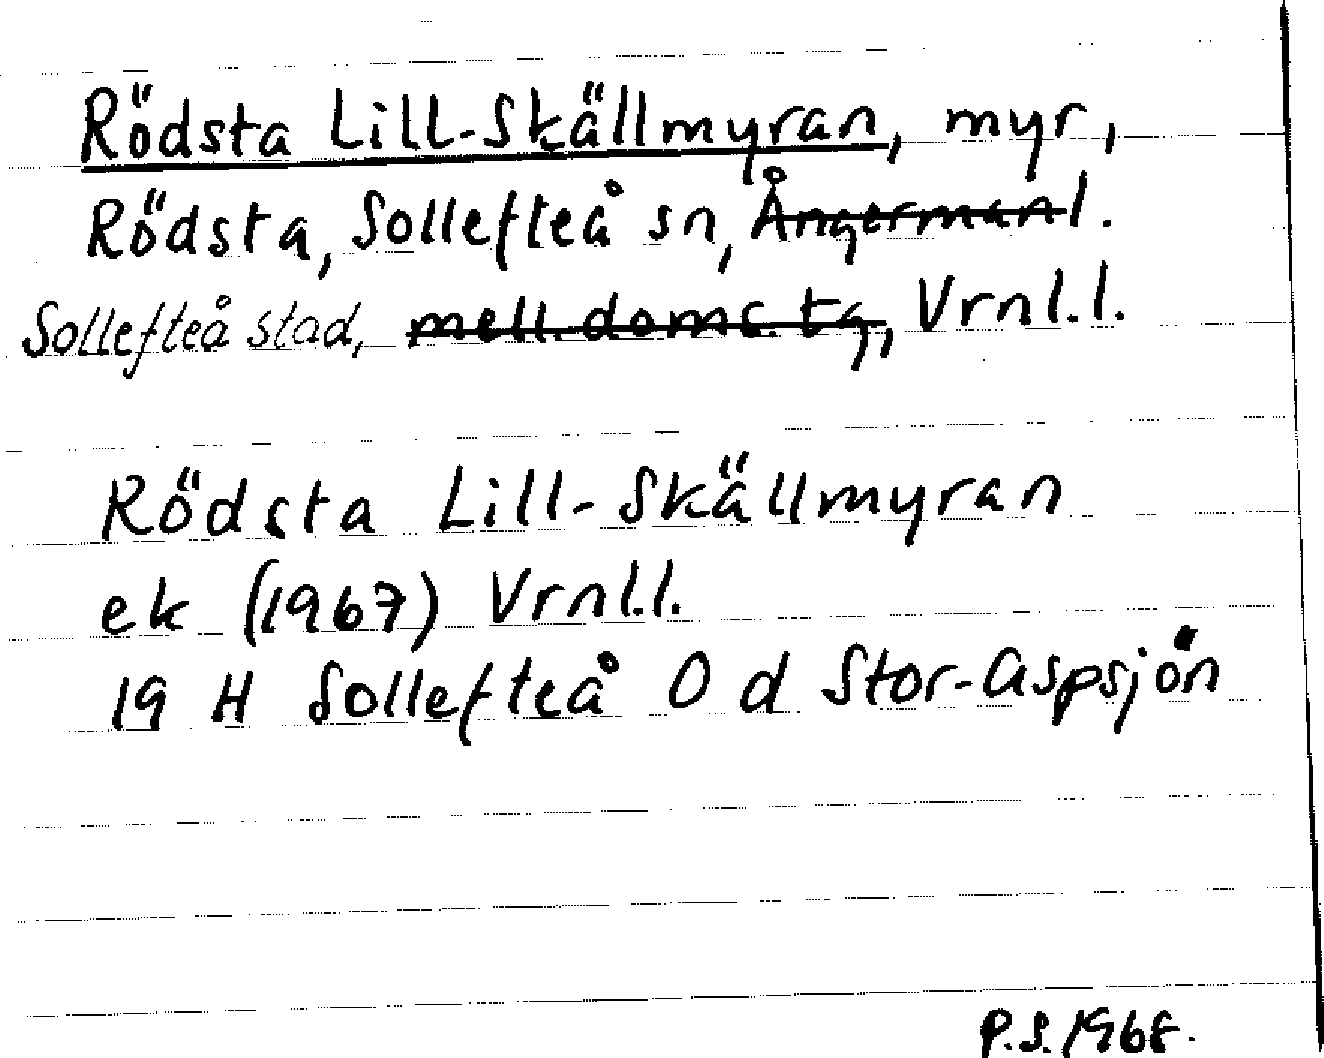 Rödsta Lill-Skällmyran, myr,
Rödsta, Sollefteå sn, Ångermanl.
Sollefteå stad, mell. doms. tg, Vrnl.l.
Rödsta Lill-Skällmyran
ek (1967) Vrnl.l.
19 H Sollefteå O d Stor-Aspsjön
P.S. 1968.